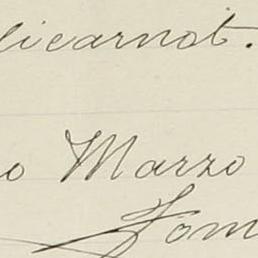 licarnot.
o Marzo
Tom